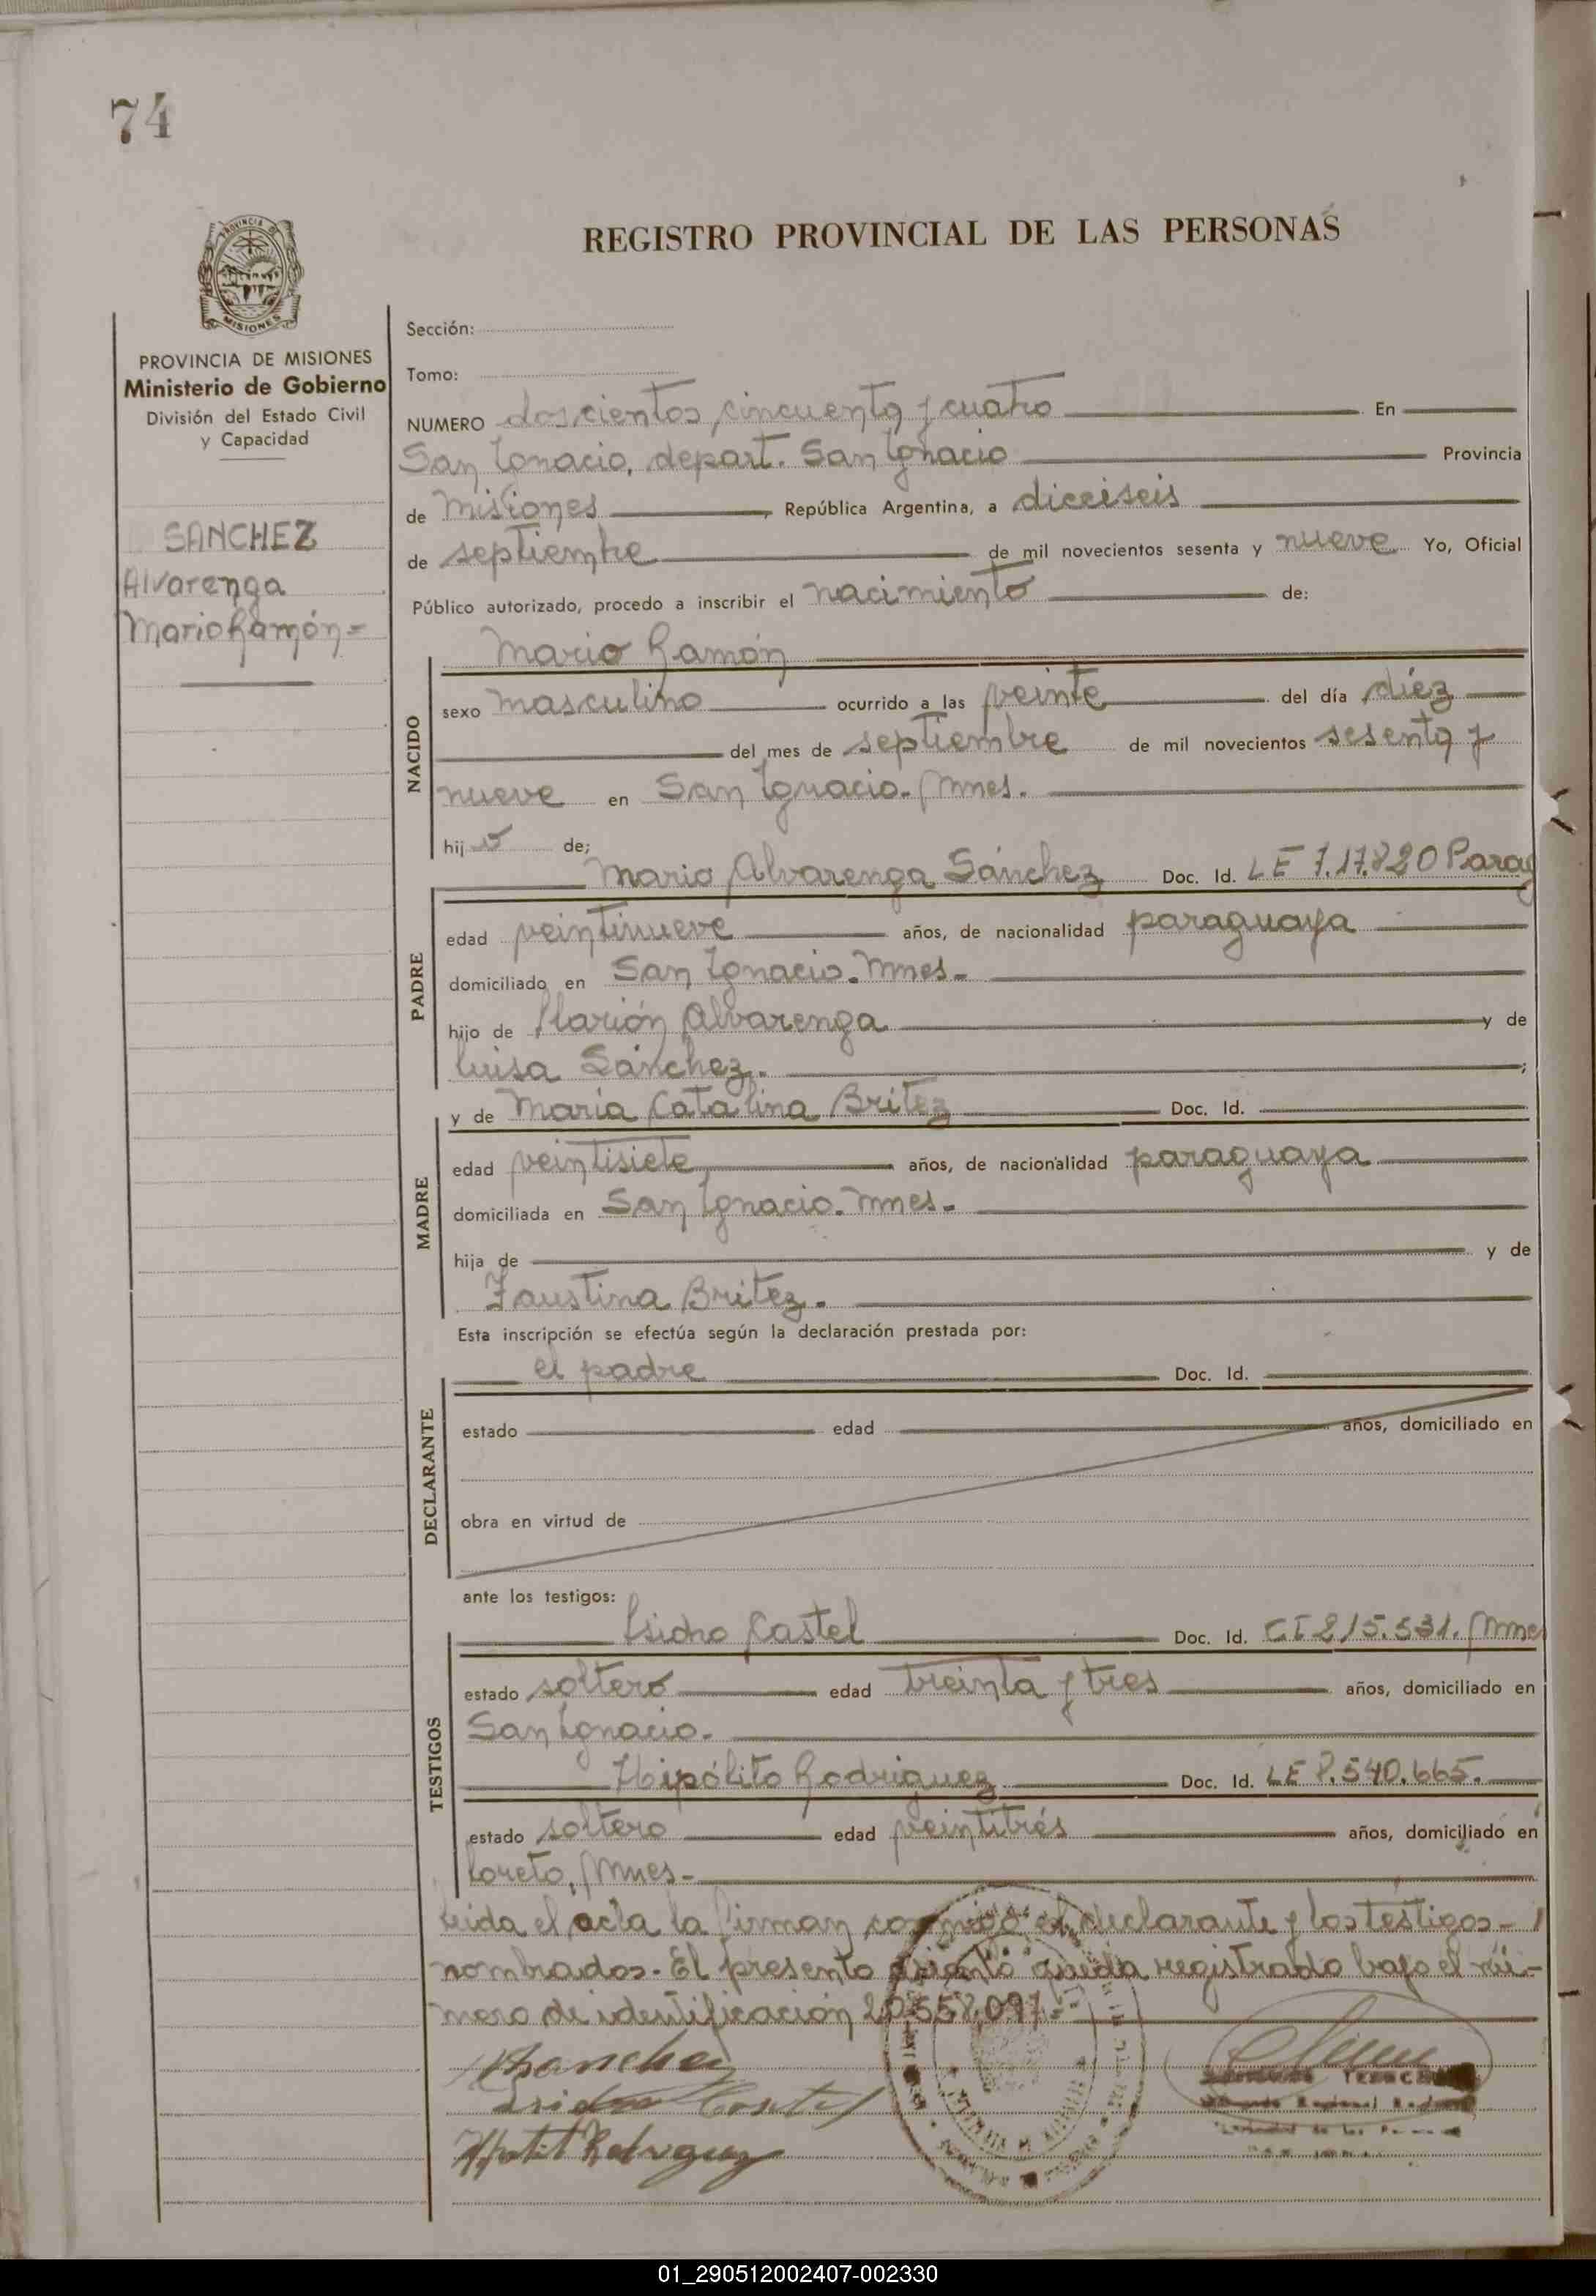 74
REGISTRO PROVINCIAL DE LAS PERSONAS
PROVINCIA DE
MISIONES
PROVINCIA DE MISIONES
Ministerio de Gobierno
División del Estado Civil
y Capacidad
SANCHEZ
Alvarenga
Mario Ramón=
Sección:
Tomo:
NUMERO doscientos cincuenta y cuatro En
San Ignacio, depart. San Ignacio Provincia
de Misiones, República Argentina, a dieciseis
de septiembre de mil novecientos sesenta y nueve Yo, Oficial
Público autorizado, procedo a inscribir el nacimiento de:
Mario Ramón
NACIDO
sexo masculino ocurrido a las veinte del día diez
del mes de septiembre de mil novecientos sesenta y
nueve en San Ignacio. Mnes.
hijo de;
Mario Alvarenga Sánchez Doc. Id. LE Parag
PADRE
edad veintinueve años, de nacionalidad paraguaya
domiciliado en San Ignacio. Mnes-
hijo de Ilarión Alvarenga y de
Luisa Sánchez. ;
y de María Catalina Britez Doc. Id.
MADRE
edad veintisiete años, de nacionalidad paraguaya
domiciliada en San Ignacio. Mnes-
hija de y de
Faustina Britez.
Esta inscripción se efectúa según la declaración prestada por:
el padre Doc. Id.
DECLARANTE
estado edad años, domiciliado en
obra en virtud de
ante los testigos:
Isidro Castel Doc. Id. CI 215.531. Mnes
TESTIGOS
estado soltero edad treinta y tres años, domiciliado en
San Ignacio.
Hipólito Rodriguez Doc. Id. LE 540.665.
estado soltero edad veintitrés años, domiciliado en
Loreto, Mnes-
Leida el acta la firman conmigo el declarante y los testigos-
nombrados. El presente asiento queda registrado bajo el nú-
mero de identificación 20.558.091.
01_290512002407-002330